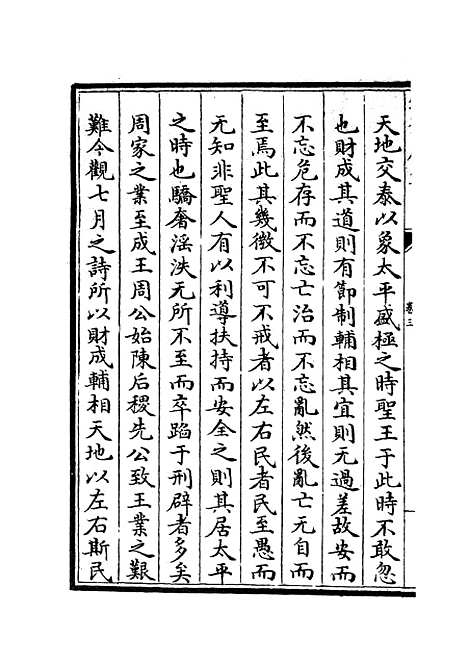 天地交泰以象太平盛極之時聖王于此時不敢忽
也財成其道則有節制輔相其宜則无過差故安而
不忘危存而不忘亡治而不忘亂然後亂亡无自而
至焉此其幾微不可不戒者以左右民者民至愚而
无知非聖人有以利導扶持而安全之則其居太平
之時也驕奢滛泆无所不至而卒蹈于刑辟者多矣
周家之業至成王周公始陳后稷先公致王業之艱
難今觀七月之詩所以財成輔相天地以左右斯民
卷三